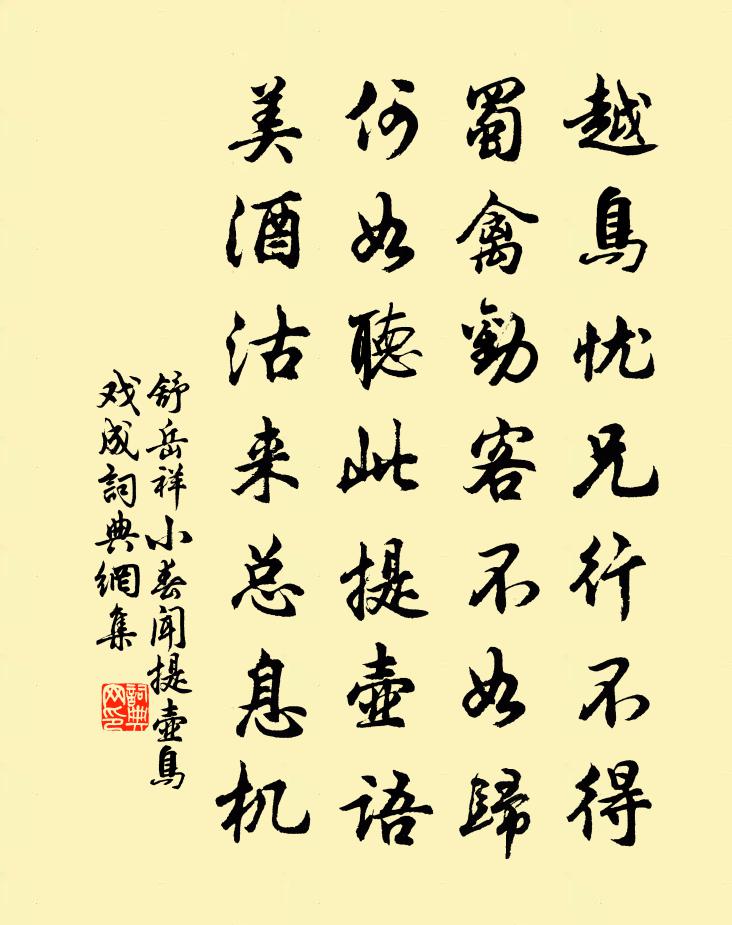 越鳥忧兄行不得
蜀禽勸客不如歸
何如聽此提壺語
美酒沽来总息机
舒岳祥小春聞提壺鳥
戏成詞典網集
詞典网印